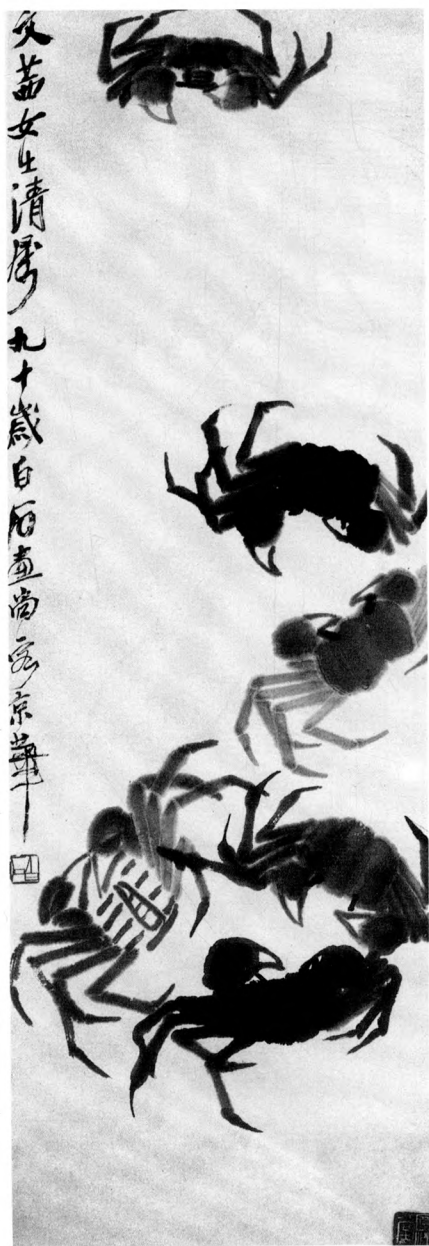 文茜女生清属九十岁白石画尚客京华